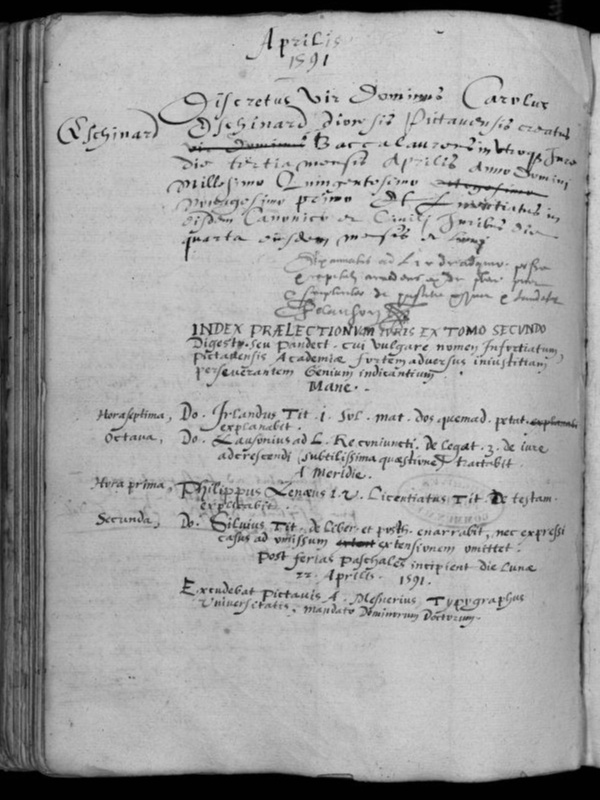 Aprilis
1591
Discretus Vir Dominus Carolus
Eschinard
Eschinard diocesis Pictavensis creatus
vir dominus Baccalaureus in utroq Jure
die tertia mensis Aprilis anno Domini
Millesimo Quingentesimo octogesimo
nonagesimo primo Et Licentiatus in
eisdem Canonico et Civili Juribus die
quarta eiusdem mensis et anni
INDEX PRÆLECTIONVM IVRIS EX TOMO SECVNDO
Digestor. seu Pandect. cui vulgare nomen Infortiatum,
pictauensis Academiæ fortem aduersus iniustitiam
perseuerantem Genium indicantium.
Mane.
Hora septima, Do. Irlandus Tit. i. Sol. mat. dos quemad. petat. explanabit
explanabit.
Octaua, Do. Lausonius ad L. Re coniuncti. De legat. 3. de iure
adcrescendi (subtilissima quæstione) tractabit.
A Meridie.
Hora prima, Philippus Zenæus I. V. Licentiatus Tit. De testam.
explicabit.
Secunda, Do. Siluius Tit. de Liber. et posth. enarrabit, nec expressi
casus ad omissum extensionem omittet.
Post ferias paschales incipient die Lunæ
22. Aprilis. 1591.
Excudebat Pictauis A. Mesnerius, Typygraphus
Vniuersitatis, mandato Dominorum Doctorum.